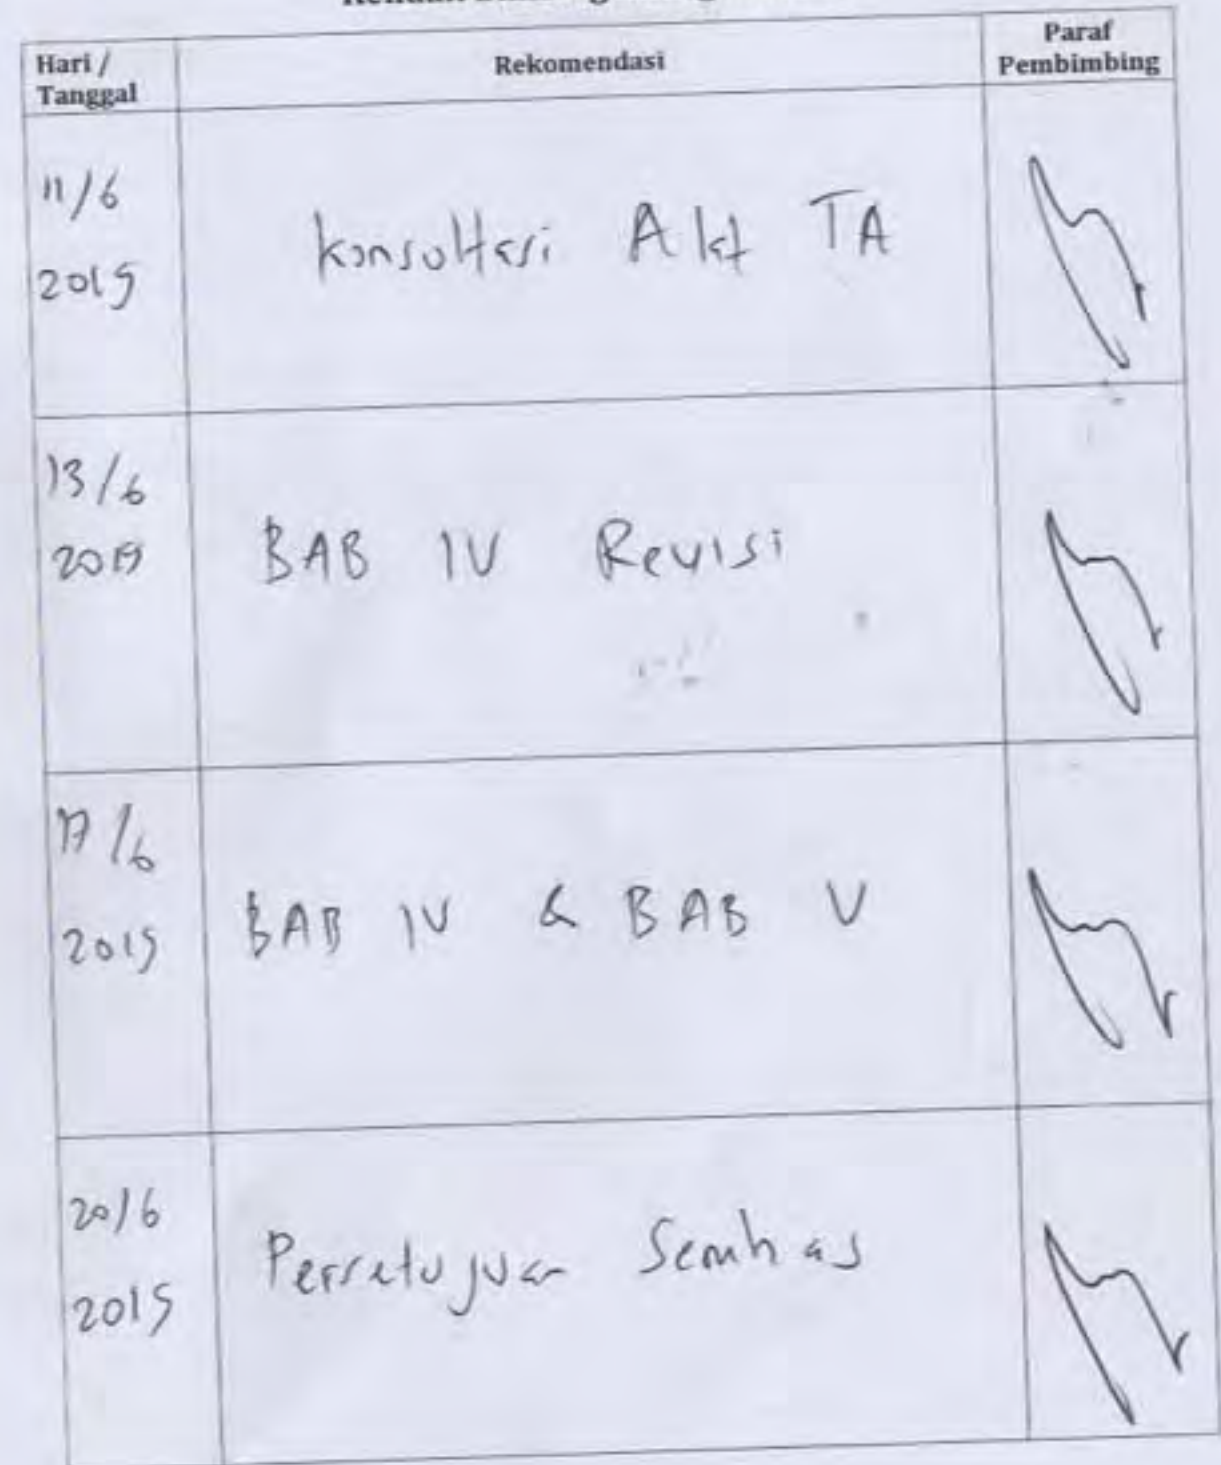 Hari / Tanggal
Rekomendasi
Paraf Pembimbing
11/6
2019
Konsultasi TA
13/6
2019
BAB IV Revisi
17/6
2019
BAB IV & BAB V
20/6
2019
Persetujuan Semhas